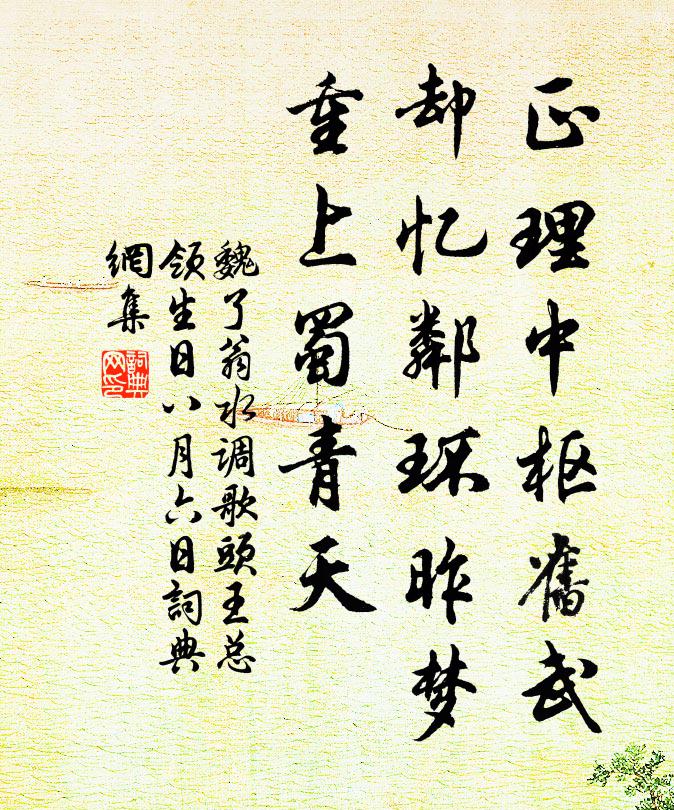 正理中枢舊武
却忆鄰环昨梦
重上蜀青天
魏了翁水调歌頭王总
领生日八月六日詞典
網集
詞典
网印